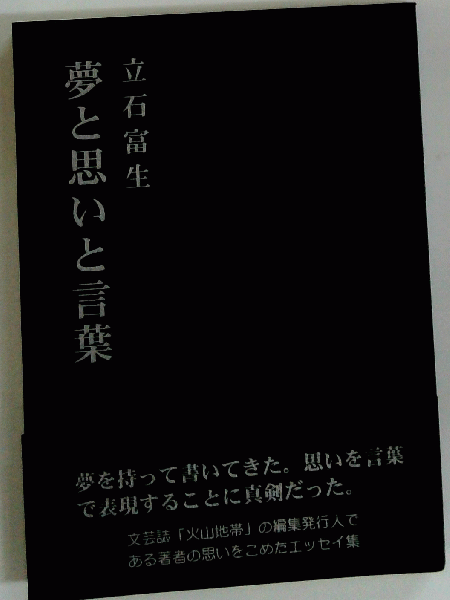 立石富生
夢と思いと言葉
夢を持って書いてきた。思いを言葉
で表現することに真剣だった。
文芸誌「火山地帯」の編集発行人で
ある著者の思いをこめたエッセイ集